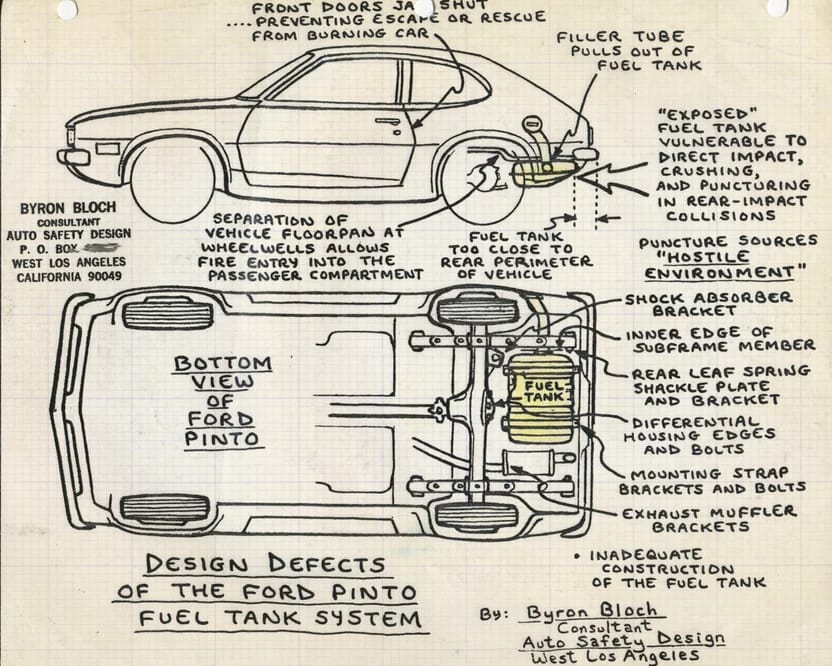 FRONT DOORS JAM SHUT
.... PREVENTING ESCAPE OR RESCUE
FROM BURNING CAR
FILLER TUBE
PULLS OUT OF
FUEL TANK
"EXPOSED"
FUEL TANK
VULNERABLE TO
DIRECT IMPACT,
CRUSHING,
AND PUNCTURING
IN REAR-IMPACT
COLLISIONS
BYRON BLOCH
CONSULTANT
AUTO SAFETY DESIGN
P. O. BOX
WEST LOS ANGELES
CALIFORNIA 90049
SEPARATION OF
VEHICLE FLOORPAN AT
WHEELWELLS ALLOWS
FIRE ENTRY INTO THE
PASSENGER COMPARTMENT
FUEL TANK
TOO CLOSE TO
REAR PERIMETER
OF VEHICLE
PUNCTURE SOURCES
"HOSTILE
ENVIRONMENT"
SHOCK ABSORBER
BRACKET
INNER EDGE OF
SUBFRAME MEMBER
REAR LEAF SPRING
SHACKLE PLATE
AND BRACKET
DIFFERENTIAL
HOUSING EDGES
AND BOLTS
MOUNTING STRAP
BRACKETS AND BOLTS
EXHAUST MUFFLER
BRACKETS
BOTTOM
VIEW
OF
FORD
PINTO
FUEL
TANK
• INADEQUATE
CONSTRUCTION
OF THE FUEL TANK
DESIGN DEFECTS
OF THE FORD PINTO
FUEL TANK SYSTEM
By: Byron Bloch
Consultant
Auto Safety Design
West Los Angeles